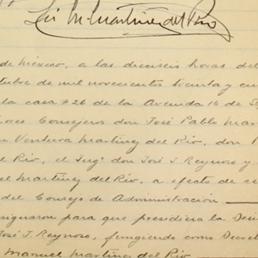 Martínez del Río
de México, a las dieciseis horas del
tubre de mil novecientos treinta y
la casa #26 de la Avenida 16 de S
Consejeros don José Pablo Mar
Ventura Martínez del Río, don P
el Río, el Ing° don José J. Reynoso y
el Martínez del Río, a efecto de ce
del Consejo de Administración
signaron para que presidiera la Sesi
José J. Reynoso, fungiendo como Secre
Manuel Martínez del Río